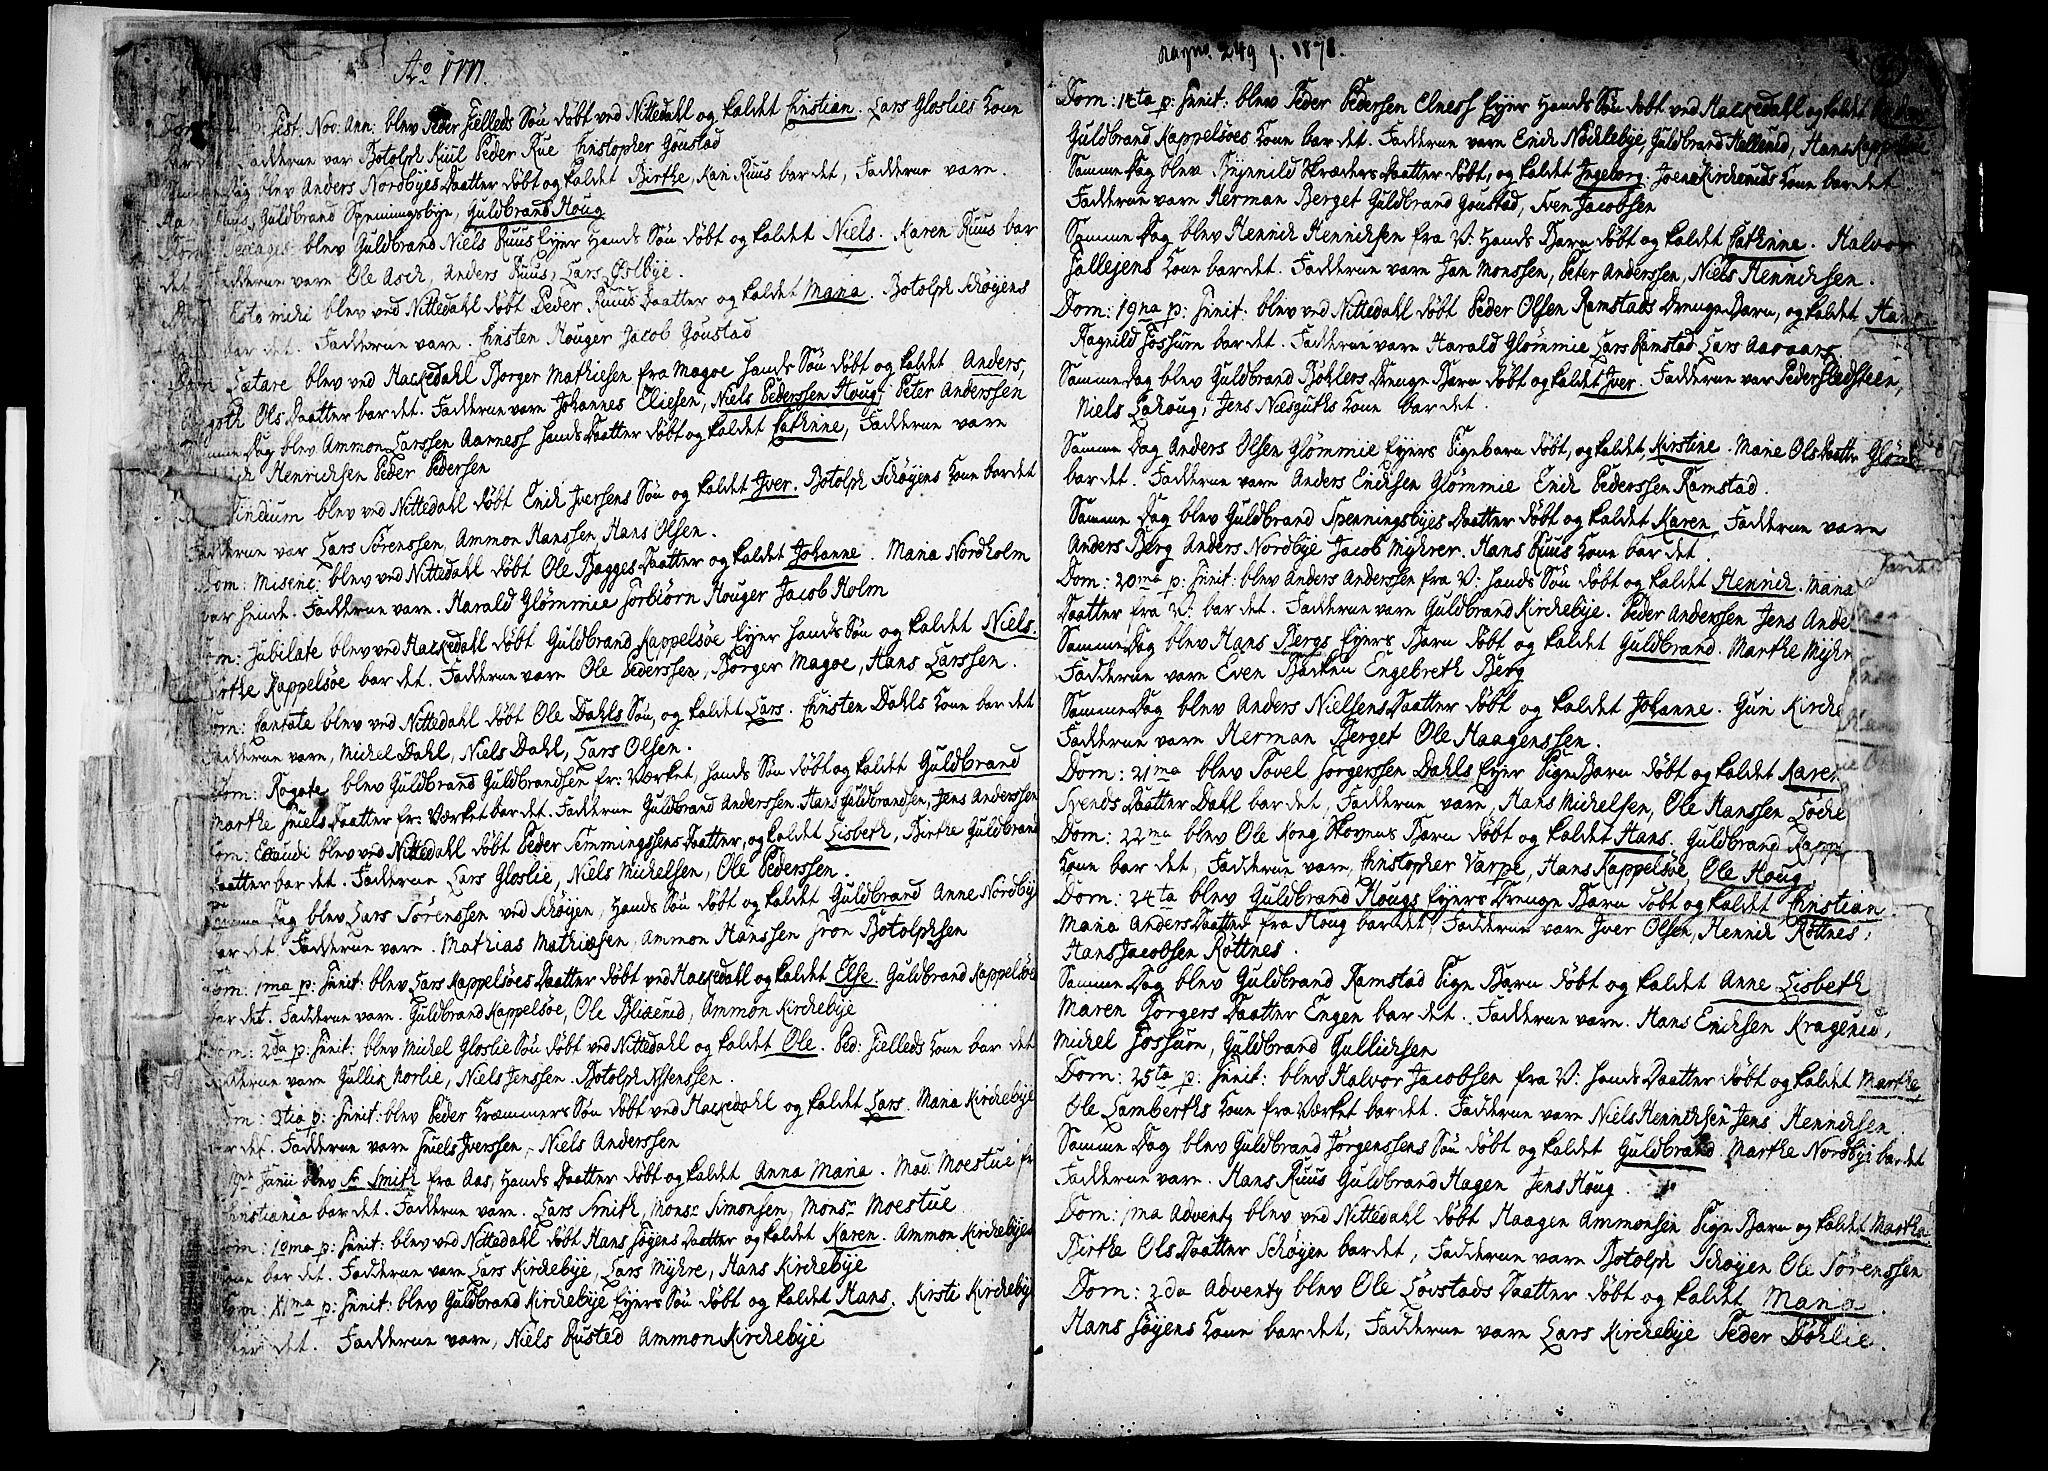 Ao 1777.
Fest: Nov: Ann: blev Peder Fielleds Søn døbt ved Nittedahl og kaldet Christian. Lars Gloslies Kone
Fadderne var Botolph Kiul Peder Rue Christopher Goustad
Dag blev Anders Nordbyes Daatter døbt og kaldet Birthe, Kari Ruus bar det, Fadderne vare.
Guldbrand Spenningsbye, Guldbrand Houg
blev Guldbrand Niels Ruus Eyer Hands Søn døbt og kaldet Niels. Karen Ruus bar
det Fadderne vare Ole Asch, Anders Ruus, Lars Østbye.
Esto mihi blev ved Nittedahl døbt Peder Ruuds Daatter og kaldet Maria. Botolph Schøyens
bar det. Fadderne vare. Christen Houger Jacob Goustad
Dom Lætare blev ved Hackedahl Borger Mathiesen fra Magoe Hands Søn døbt og kaldet Anders,
Ols Daatter bar det. Fadderne vare Johannes Eliesen, Niels Pederssen Houg, Peter Anderssen
Dag blev Ammon Larssen Aarness hands Daatter døbt og kaldet Cathrine, Fadderne vare
Henrichsen Peder Pedersen
blev ved Nittedahl døbt Erich Iversens Søn og kaldet Iver. Botolph Schøyens Kone bar det
Fadderne var Lars Sørenssen, Ammon Hanssen, Hans Olsen.
Dom: Miseric: blev ved Nittedahl døbt Ole Bagges Daatter og kaldet Johanne. Maria Nordholm
bar hende. Fadderne vare. Harald Glømmie Torbiørn Houger Jacob Holm
Dom: Jubilate blev ved Hackedahl døbt Guldbrand Kappelsøe Eyer hands Søn og kaldet Niels.
Birthe Kappelsøe bar det. Fadderne vare Ole Pederssen, Borger Magoe, Hans Larssen.
Dom: Cantate blev ved Nittedahl døbt Ole Dahls Søn, og kaldet Lars. Christen Dahls Kone bar det
Fadderne vare, Michel Dahl, Niels Dahl, Lars Olsen.
Dom: Rogate blev Guldbrand Guldbrandsen fr: Værket, hands Søn døbt og kaldet Guldbrand
Marthe Truels Daatter fr: Værket bar det. Fadderne Guldbrand Anderssen. Hans Guldbrandsen, Jens Anderssen
Dom: Exaudi blev ved Nittedahl døbt Peder Temmingssens Daatter, og kaldet Lisbeth, Birthe Guldbrand
Daatter bar det. Fadderne Lars Gloslie, Niels Michelsen, Ole Pederssen.
Samme Dag blev Lars Sørenssen ved Schøyen, Hands Søn døbt og kaldet Guldbrand Anne Nordbye
bar det. Fadderne vare. Mathias Mathiæsen, Ammon Hanssen Iron Botolphsen
Dom: 1ma p: Trinit: blev Lars Kappelsøes Daatter døbt ved Hackedahl og kaldet Else. Guldbrand Kappelsøe
bar det. Fadderne vare. Guldbrand Kappelsøe, Ole Blixerud, Ammon Kirchebye
Dom: 2da p: Trinit: blev Michel Gloslie Søn døbt ved Nittedahl og kaldet Ole. Ped: Fielleds Kone bar det
Fadderne vare Gullik Norlie, Niels Jenssen. Botolph
Dom: 3tia p: Trinit: blev Peder Kræmmers Søn døbt ved Hackedahl og kaldet Lars. Maria Kirchebye
bar det. Fadderne vare Truels Iverssen, Niels Anderssen
Junii blev Sr Smith fra Aas, hands Daatter døbt og kaldet Anna Maria. Mad: Moestue fr
Christiania bar det. Fadderne vare. Lars Smith, Monsr Simonsen, Monsr Moestue
Dom: 10ma p: Trinit: blev ved Nittedahl døbt Hans Søyens Daatter og kaldet Karen. Ammon Kirchebyes
Kone bar det. Fadderne vare Lars Kirchebye, Lars Myhre, Hans Kirchebye
Dom: 11ma p: Trinit: blev Guldbrand Kirchebye Eyers Søn døbt og kaldet Hans. Kirsti Kirchebye
det. Fadderne vare, Niels Rusted Ammon Kirchebye
249 1878.
Dom: 14ta p: Trinit: blev Peder Pedersen Elness Eyer Hands Søn døbt ved Hackedahl og kaldet
Guldbrand Kappelsøes Kone bar det. Fadderne vare Erich Nöchlebye, Guldbrand Hellerud, Hans Kappelsøe
Samme Dag blev Thjernild Skræders Daatter døbt, og kaldet Ingeborg. Joens Kircheruds Kone bar det
Fadderne vare Herman Berget Guldbrand Goustad, Sven Jacobsen
Samme Dag blev Henrich Henrichsen fra V: Hands Barn døbt og kaldet Cathrine. Halvor
Tallejens Kone bar det. Fadderne vare Jan Monssen, Peter Anderssen, Niels Henrichsen.
Dom: 19na p: Trinit: blev ved Nittedahl døbt Peder Olsen Ramstads Drenge Barn, og kaldet Hans
Ragnild Fossum bar det. Fadderne vare Harald Glømmie Lars Ramstad Lars Aaraas
Samme Dag blev Guldbrand Bøhlers Drenge Barn døbt og kaldet Iver. Fadderne var Peder Sledsteen,
Niels Lahoug, Jens Næsguths Kone bar det.
Samme Dag Anders Olsen Glömmie Eyers Pigebarn døbt, og kaldet, Kirstine. Marie Ols Daatter
bar det. Fadderne vare Anders Erichsen Glömmie Erich Pederssen Ramstad.
Samme Dag blev Guldbrand Spenningsbyes Daatter døbt og kaldet Karen. Fadderne vare
Anders Berg Anders Nordbye Jacob Myhrer. Hans Ruus Kone bar det
Dom: 20ma p: Trinit: blev Anders Anderssen fra V: hands Søn døbt og kaldet Henrich. Maria
Daatter fra V: bar det. Fadderne vare Guldbrand Kirchebye. Peder Anderssen Jens Ande
Samme Dag blev Hans Bergs Eyers Barn døbt og kaldet Guldbrand. Marthe Myhr
Fadderne vare Even Backen Engebreth Berg
Samme Dag blev Anders Nielsens Daatter døbt og kaldet Johanne. Guri Kirche
Fadderne vare Herman Berget Ole Haagenssen.
Dom: 21ma blev Povel Jorgerssen Dahls Eyer Pige Barn døbt og kaldet Karen
Svends Daatter Dahl bar det, Fadderne vare, Hans Michelsen, Ole Hanssen Løche
Dom: 22ma blev Ole Kong Skovens Barn døbt og kaldet Hans. Guldbrand Kapp
Kone bar det, Fadderne vare, Christopher Varpe, Hans Kappelsøe, Ole Houg.
Dom: 24ta blev Guldbrand Hougs Eyers Drenge Barn døbt og kaldet Christian.
Maria Anders Daatter fra Houg bar det. Fadderne vare Iver Olsen, Henrich Röttnes,
Hans Jacobsen Röttnes.
Samme Dag blev Guldbrand Ramstad Pige Barn döbt og kaldet Anne Lisbeth
Maren Jorgers Daatter Engen bar det. Fadderne vare. Hans Erichsen Kragerud,
Michel Fossum, Guldbrand Gullichsen
Dom: 25ta p: Trinit: blev Halvor Jacobsen fra V: hands Daatter døbt og kaldet Marthe
Ole Lamberths Kone fra Værket bar det. Fadderne vare Niels Henrichsen Jens Henrichsen
Samme Dag blev Guldbrand Jørgenssens Søn døbt og kaldet Guldbrand Marthe Nordbye bar det
Fadderne vare. Hans Ruus Guldbrand Hagen Jens Houg.
Dom: 1ma Adventy blev ved Nittedahl døbt Haagen Ammonsen Pige Barn og kaldet Martha.
Birthe Ols Daatter Schøyen bar det, Fadderne vare Botolph Schøyen Ole Sørenssen
Dom: 2da Adventy blev Ole Lovstads Daatter døbt og kaldet Maria.
Hans Søyens Kone bar det, Fadderne vare Lars Kirchebye Peder Döhlie.